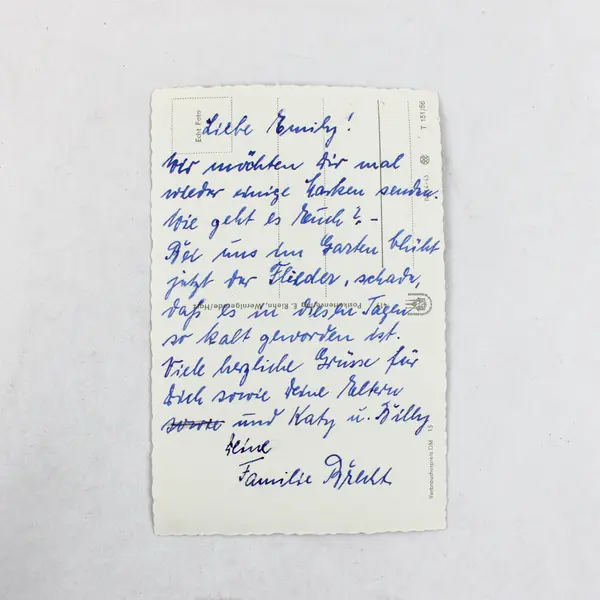 Liebe Emily!
Wir möchten Dir mal
wieder einige Karten senden.
Wie geht es Euch? –
Bei uns im Garten blüht
jetzt der Flieder, schade,
daß es in diesen Tagen
so kalt geworden ist.
Viele herzliche Grüsse für
Dich sowie Deine Eltern
und Katy u. Billy
Deine
Familie
Echt Foto
T 151/56
Verbraucherpreis DM